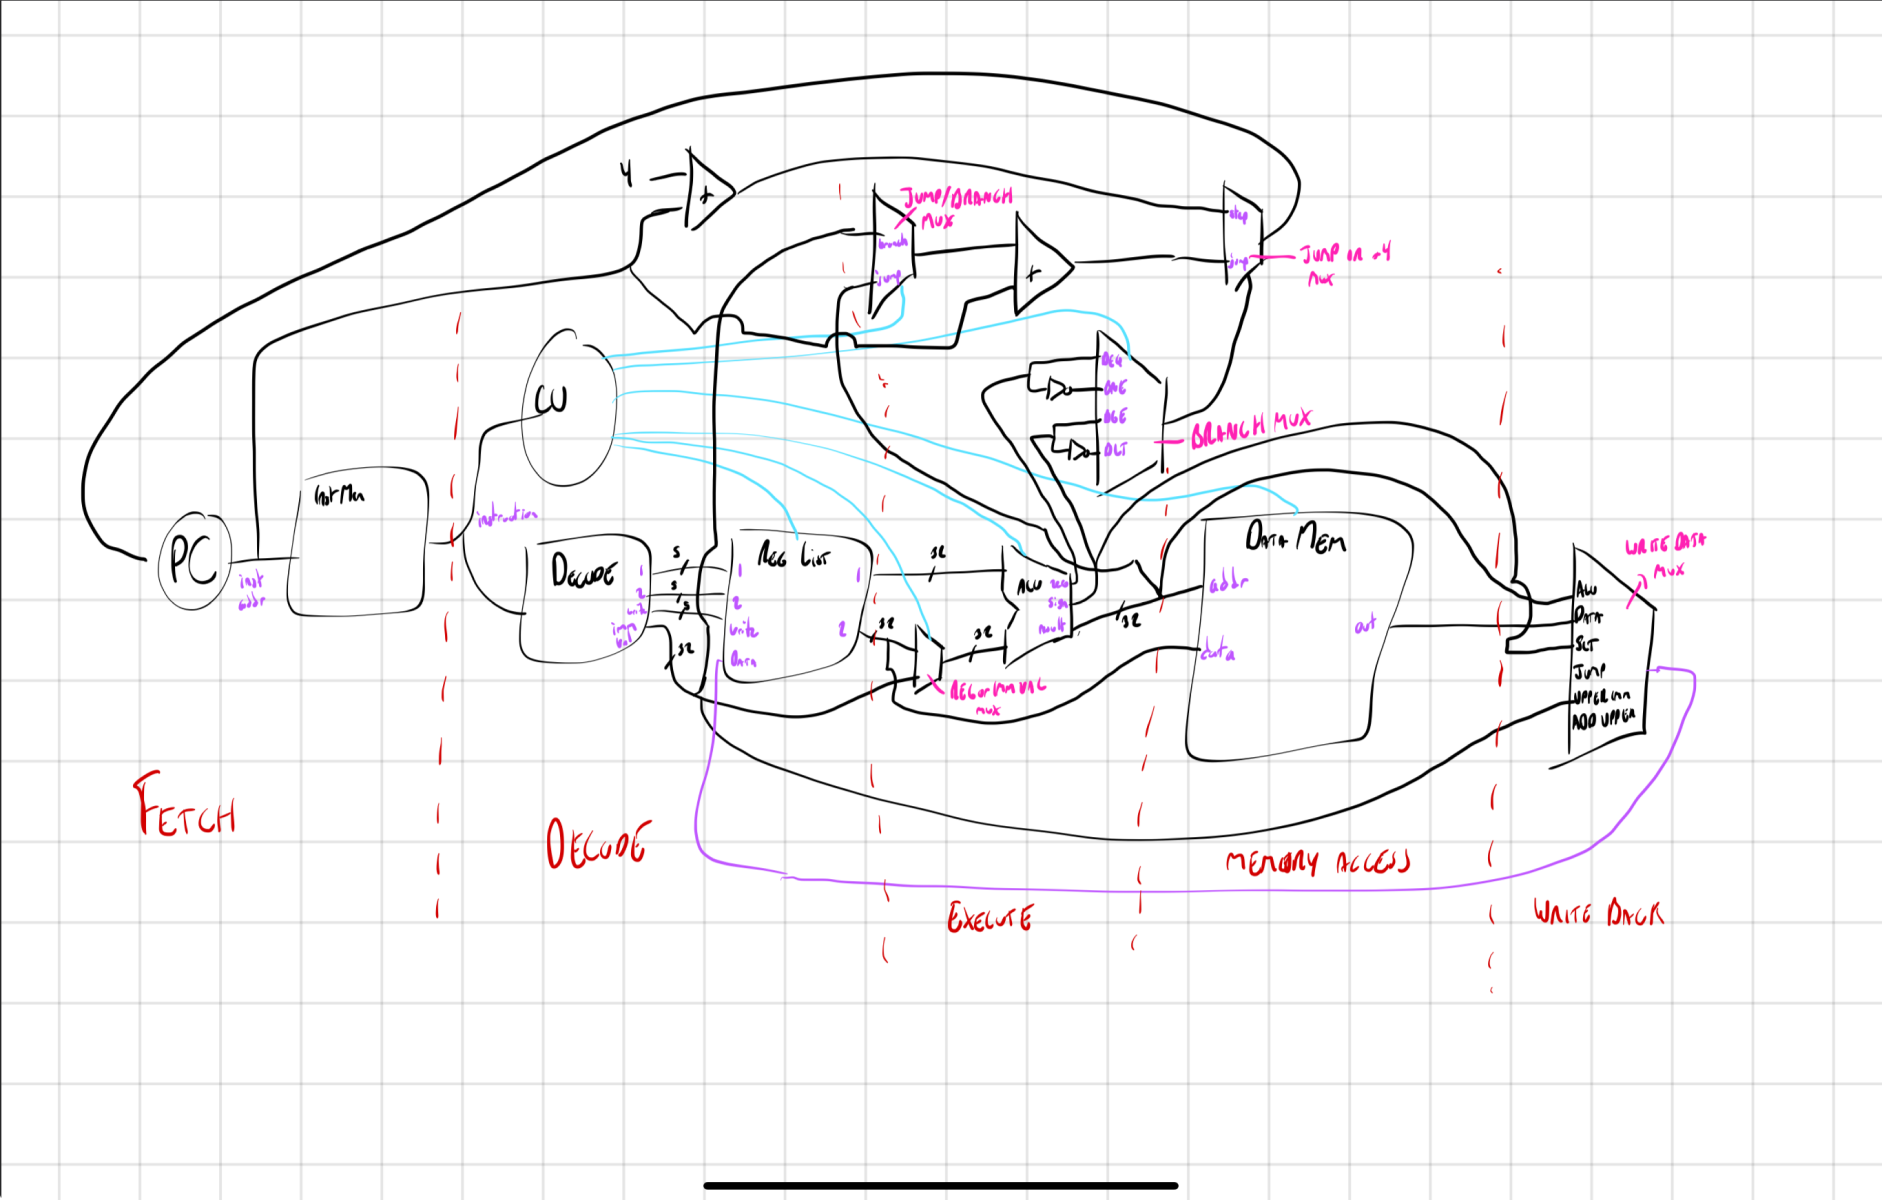 4
+
JUMP/BRANCH
MUX
branch
jump
+
step
jump
JUMP OR +4
MUX
CU
BEQ
BNE
BGE
BLT
BRANCH MUX
Inst Mem
PC
inst
addr
instruction
DECODE
1
2
write
imm
val
5
5
5
32
REG LIST
1
2
write
DATA
1
2
32
32
32
REG or IMM VAL
MUX
ALU
zero
sign
result
32
DATA MEM
addr
data
out
WRITE DATA
MUX
ALU
DATA
SLT
JUMP
UPPER IMM
ADD UPPER
FETCH
DECODE
EXECUTE
MEMORY ACCESS
WRITE BACK